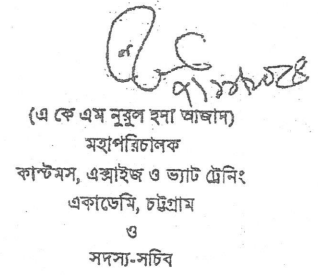 (এ কে এম নুরুল হুদা আজাদ)
মহাপরিচালক
কাস্টমস, এক্সাইজ ও ভ্যাট ট্রেনিং
একাডেমি, চট্টগ্রাম
ও
সদস্য-সচিব